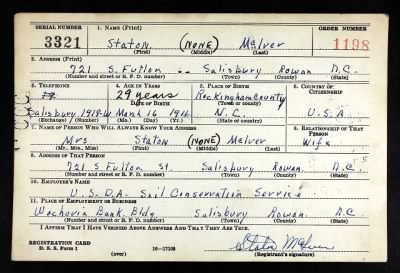 SERIAL NUMBER 1. NAME (Print) ORDER NUMBER
3321 Staton, (NONE) McIver 1198
(First) (Middle) (Last)
2. ADDRESS (Print)
721 S. Fulton -- Salisbury Rowan N.C.
(Number and street or R. F. D. number) (Town) (County) (State)
3. TELEPHONE 4. AGE IN YEARS 5. PLACE OF BIRTH 6. COUNTRY OF CITIZENSHIP
29 years Rockingham County
DATE OF BIRTH (Town or county)
Salisbury 1918-W March 16 1911 N.C. U.S.A.
(Exchange) (Number) (Mo.) (Day) (Yr.) (State or country)
7. NAME OF PERSON WHO WILL ALWAYS KNOW YOUR ADDRESS 8. RELATIONSHIP OF THAT PERSON
Mrs Staton (NONE) McIver Wife
(Mr., Mrs., Miss) (First) (Middle) (Last)
9. ADDRESS OF THAT PERSON
721 S Fulton St Salisbury Rowan N.C.
(Number and street or R. F. D. number) (Town) (County) (State)
10. EMPLOYER'S NAME
U.S.D.A. Soil Conservation Service
11. PLACE OF EMPLOYMENT OR BUSINESS
Wachovia Bank Bldg Salisbury Rowan N.C.
(Number and street or R. F. D. number) (Town) (County) (State)
I AFFIRM THAT I HAVE VERIFIED ABOVE ANSWERS AND THAT THEY ARE TRUE.
Staton McIver
REGISTRATION CARD
D. S. S. Form 1 16-17105 (Registrant's signature)
(over)